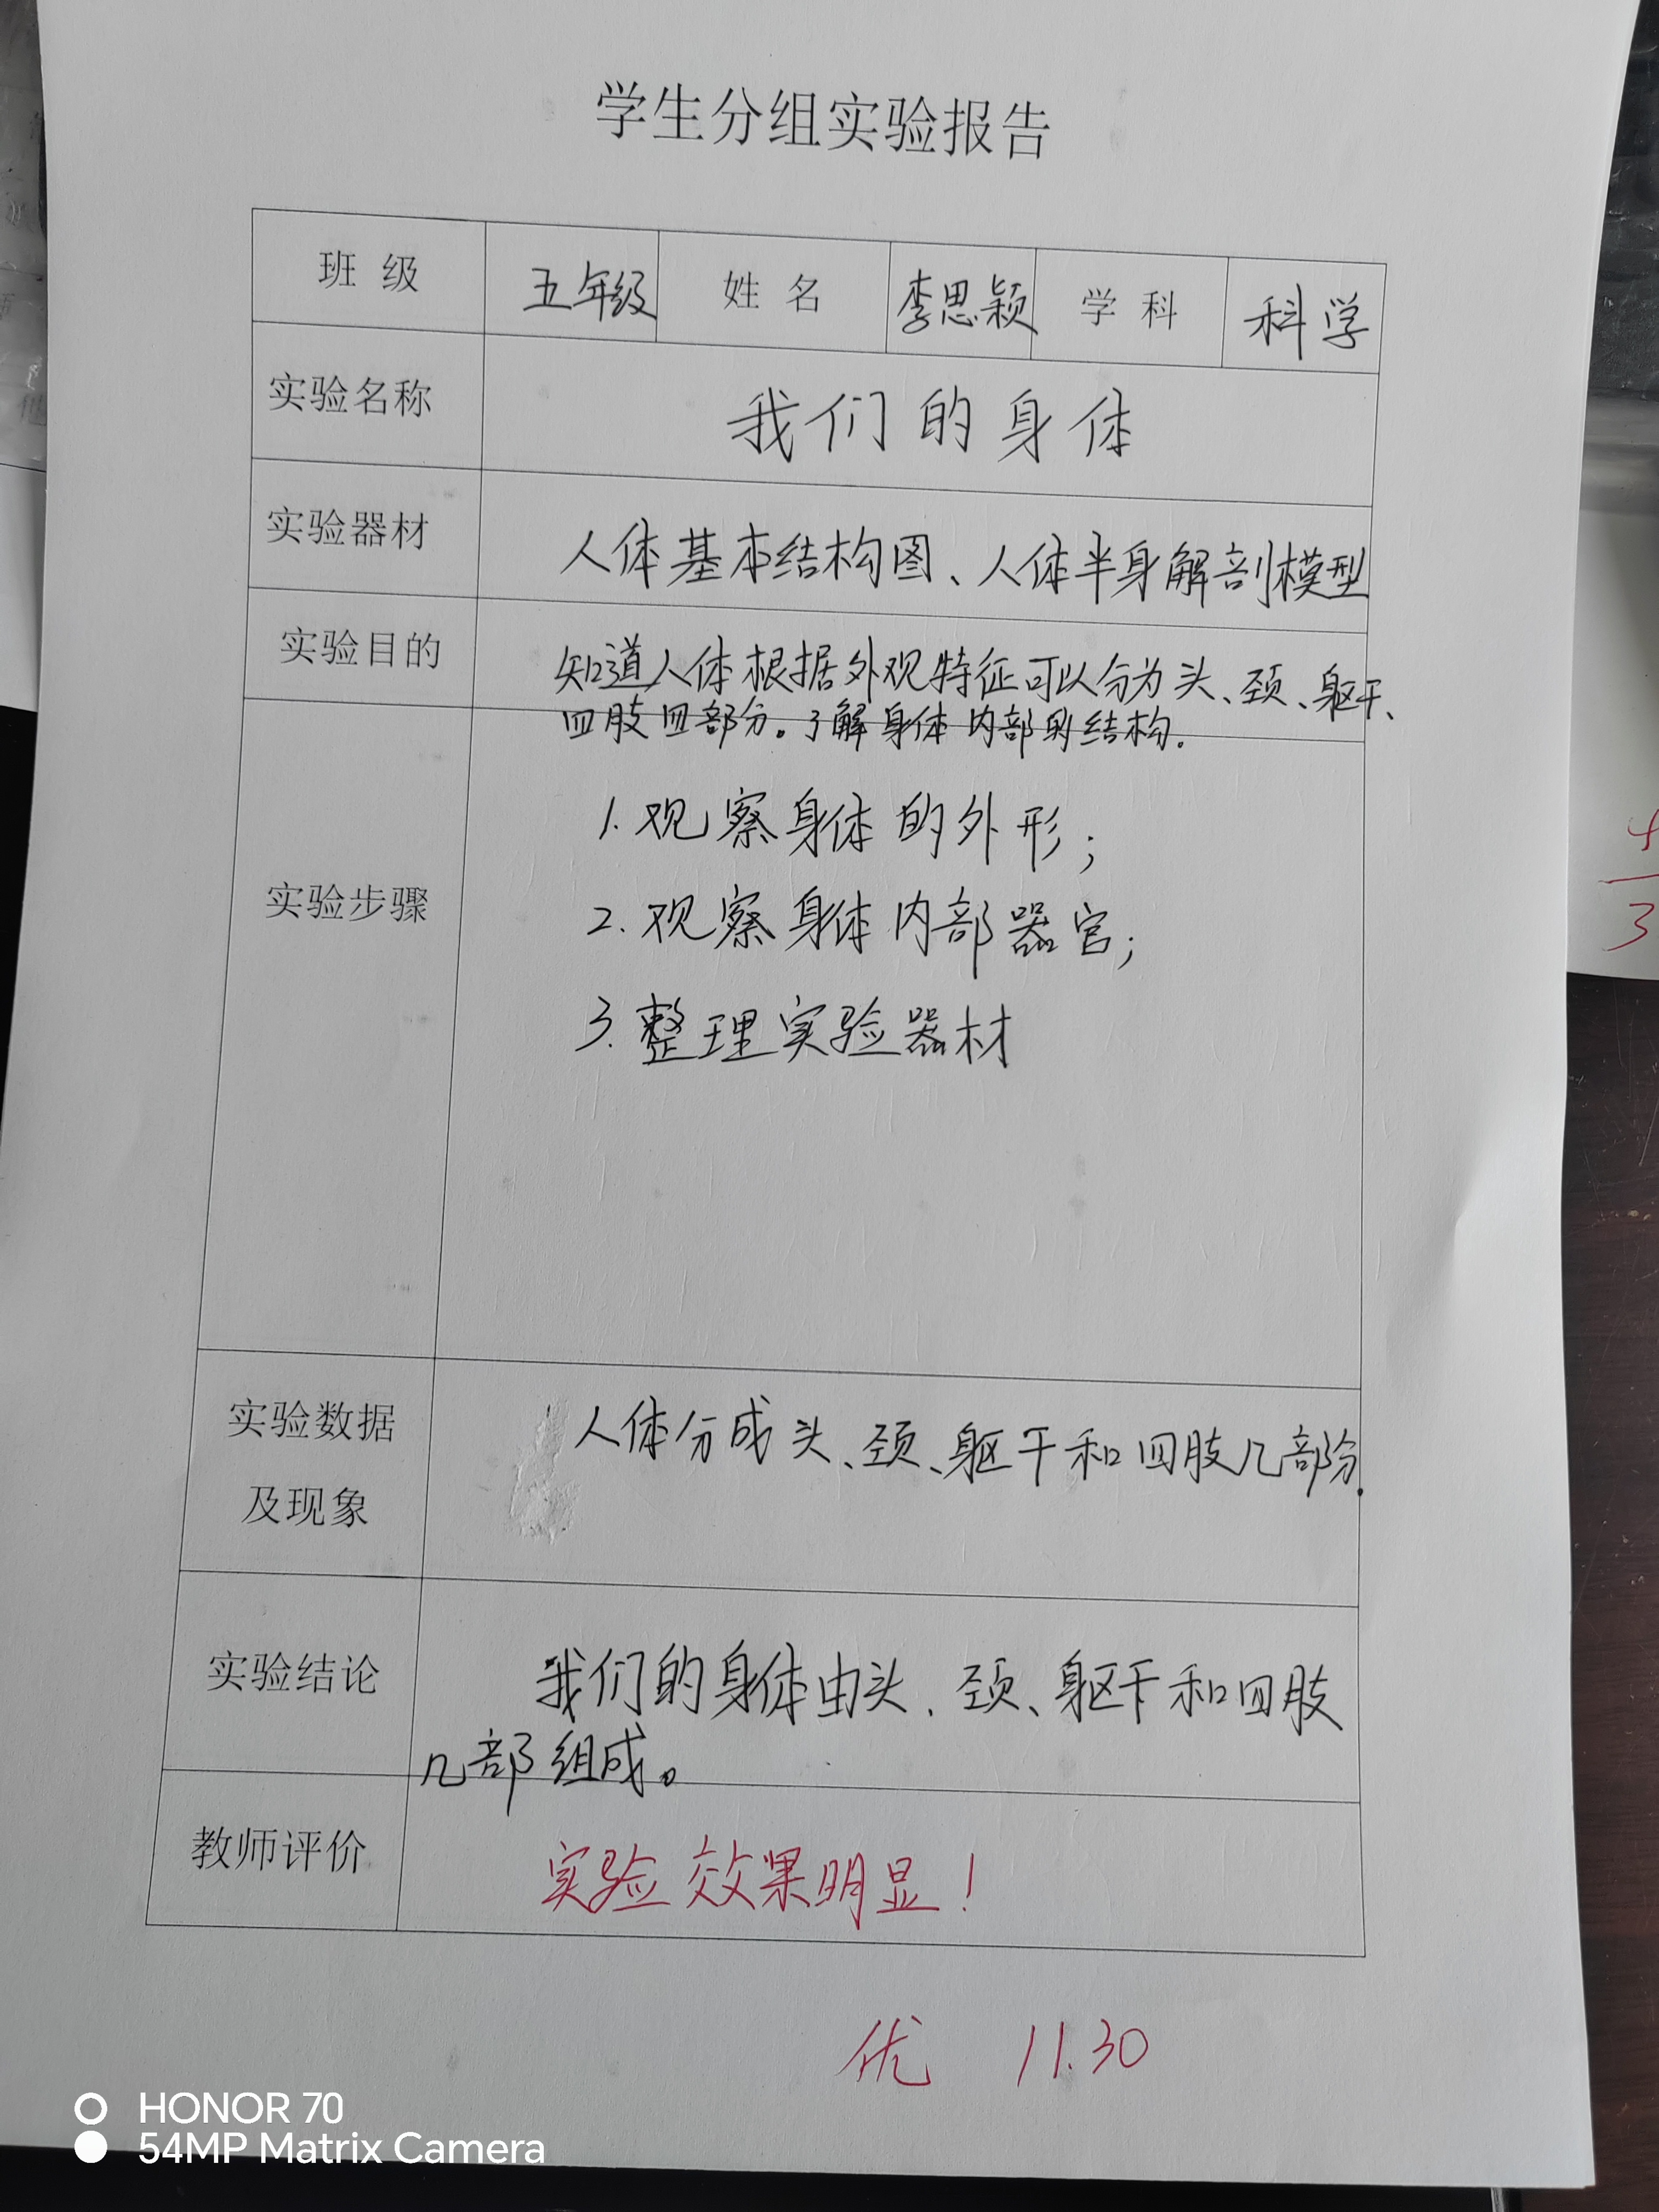 学生分组实验报告
班级 五年级 姓名 李思颖 学科 科学
实验名称 我们的身体
实验器材 人体基本结构图、人体半身解剖模型
实验目的 知道人体根据外观特征可以分为头、颈、躯干、
四肢四部分。了解身体内部的结构.
实验步骤
1.观察身体的外形;
2.观察身体内部器官;
3.整理实验器材
实验数据
及现象
人体分成头、颈、躯干和四肢几部分.
实验结论 我们的身体由头、颈、躯干和四肢
几部组成。
教师评价 实验效果明显!
优 11.30
HONOR 70
54MP Matrix Camera
3